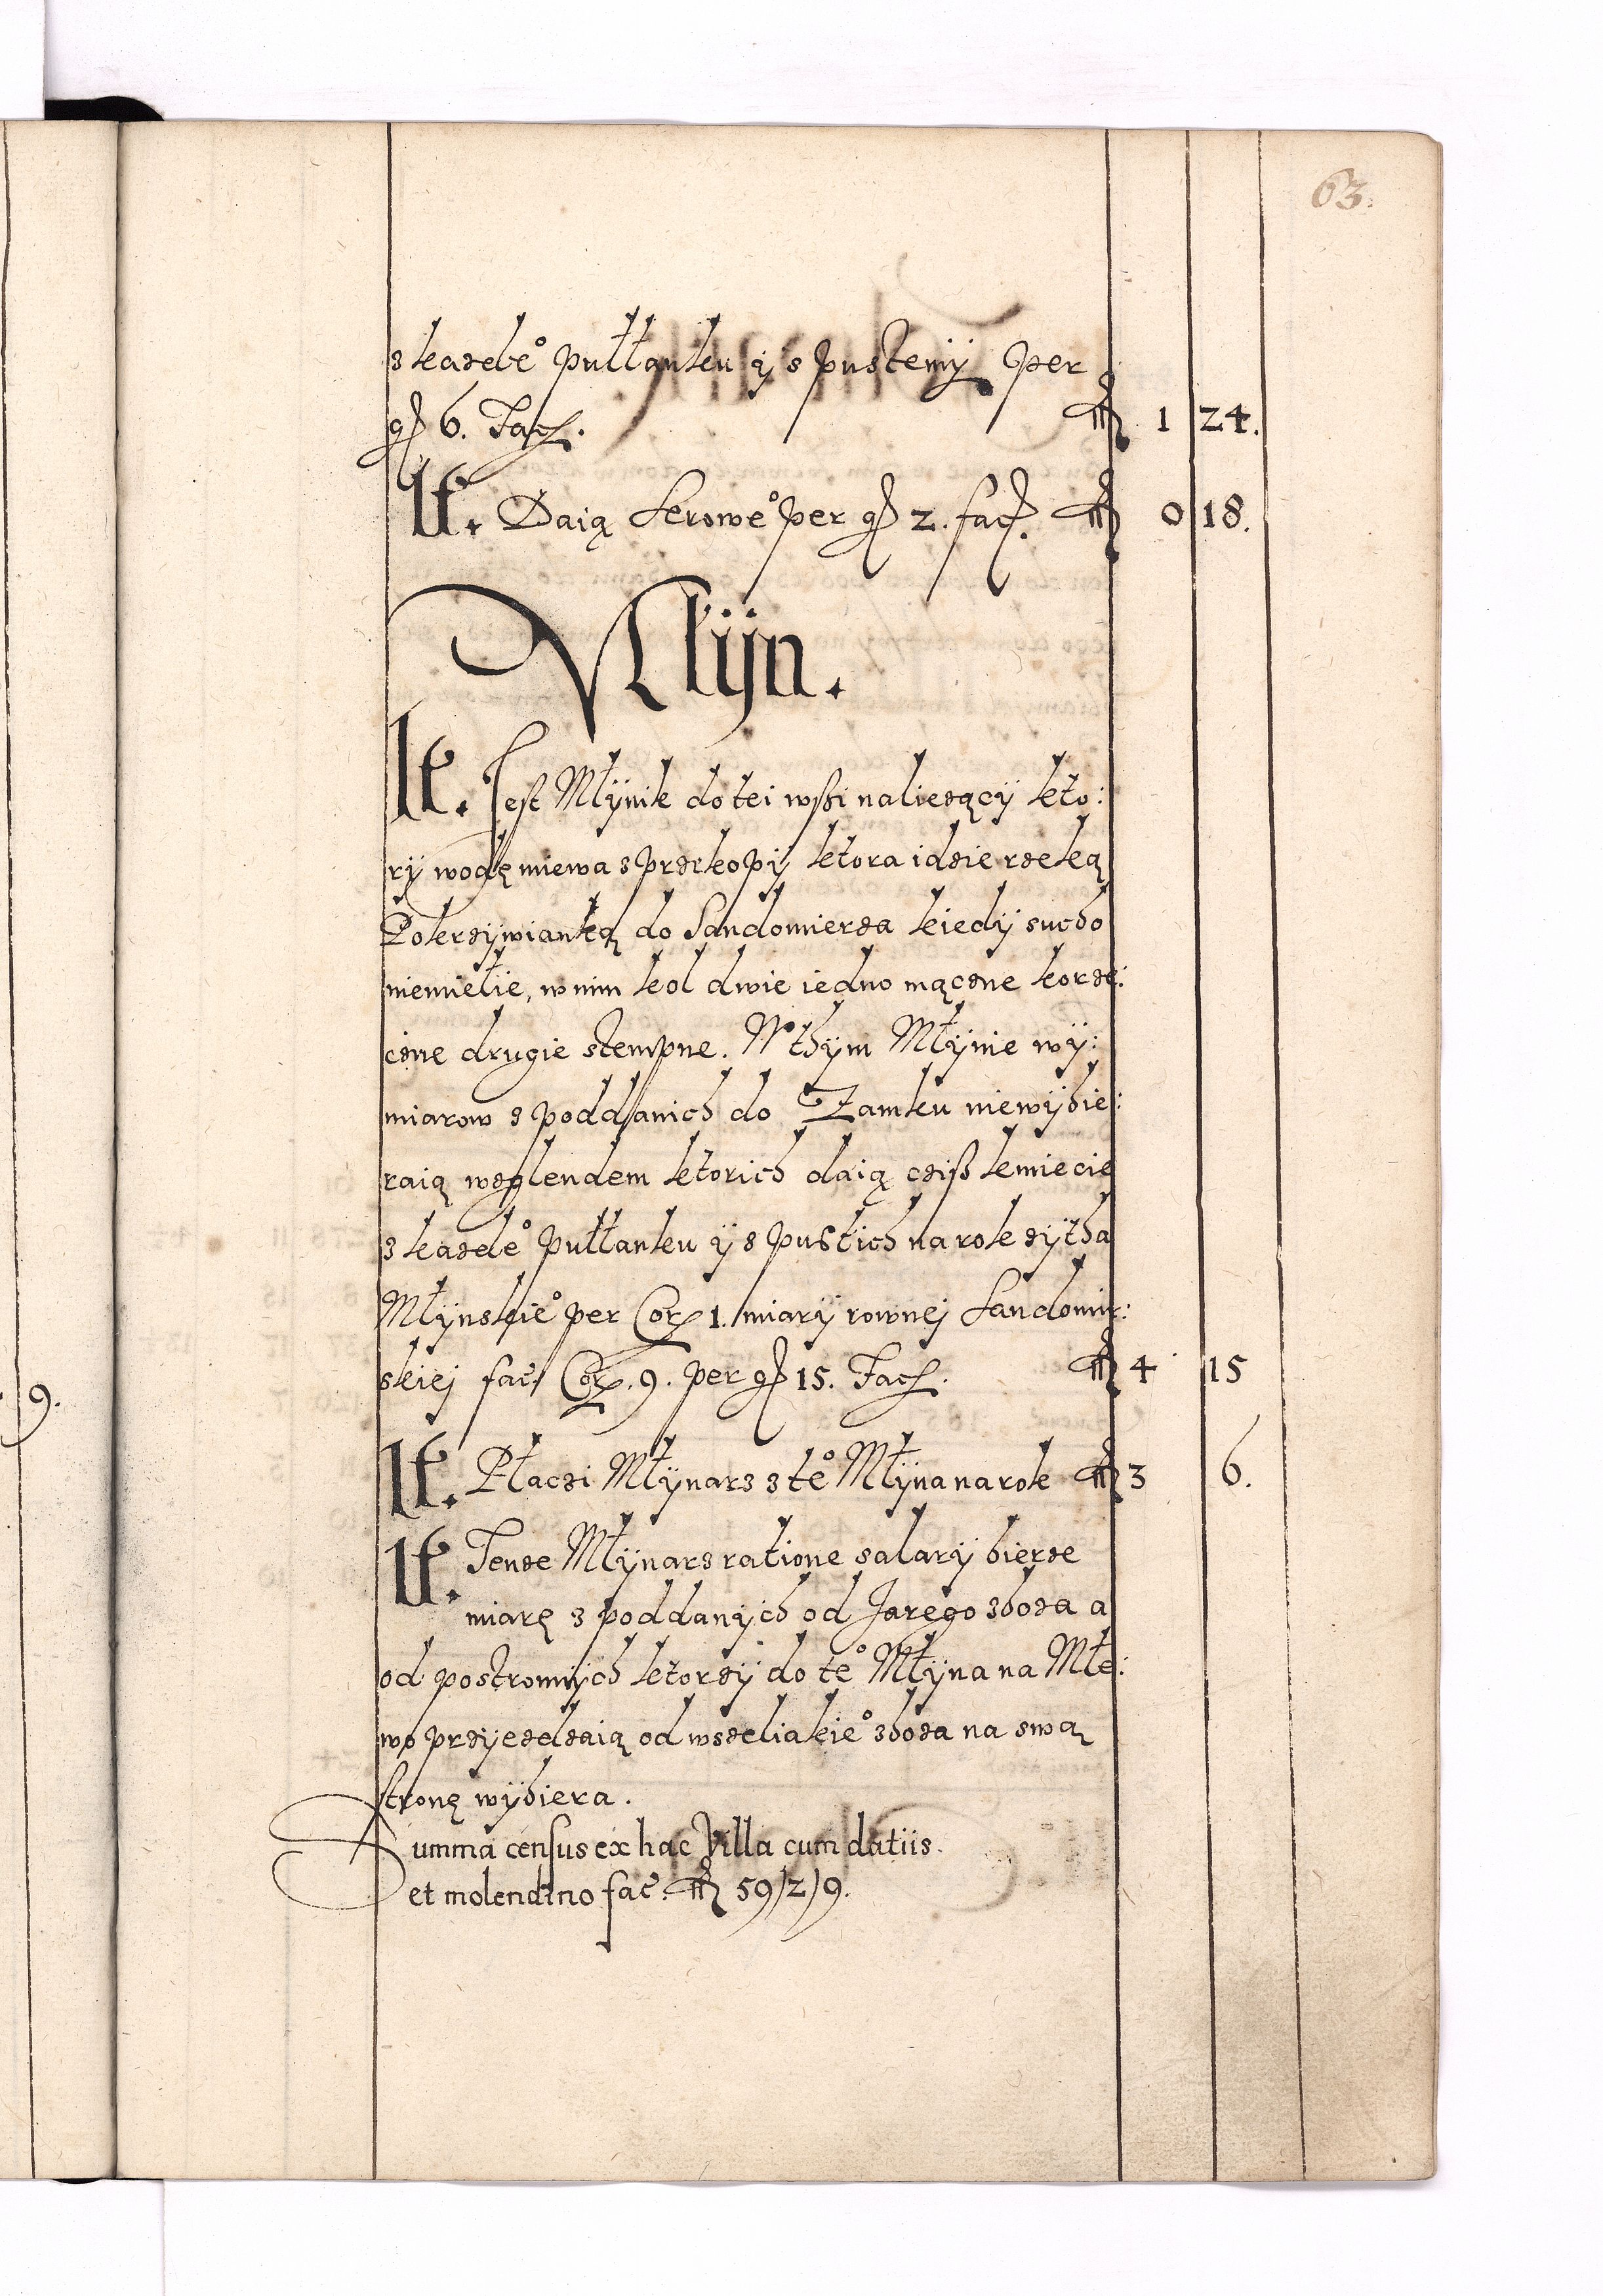 63.
z każdeº pułłanku ÿ s pustemÿ per
gr 6. Facit. fl 1 24.
It. Daią Seroweº per gr 2. facit. fl 0 18.
Młijn.
It. Jest Młÿnik do tei wßi naliezącÿ kto:
rÿ wodę miewa z przekopÿ ktora idzie rzeką
Pokrzÿwianką do Sandomierza kiedÿ sucho
niemiełie, w nim kol dwie iedno mączne korze:
czne drugie stempne. W thÿm Młÿnie wÿ:
miarow z poddanich do Zamku niewÿbie:
raią wzglendem ktorich daią czißkmiecie
z każdeº pułłanku ÿ z pustich na rok zÿtha
Młÿnskieº per Cor 1. miarÿ rownej Sandomir:
skiej fac. Cor. 9. per gr 15. Facit. fl 4 15
9.
It. Płaczi Młÿnarz z teº Młÿna na rok fl 3 6.
It. Tenze Młÿnarz ratione salarÿ bierze
miarę z poddanÿch od Jarego zboza a
od postronnÿch ktorzÿ do teº Młÿna na Młe:
wo przÿezdzaią od wszeliakieº zboza na swą
stronę wÿbiera.
Summa census ex hac Villa cum datiis.
et molendino fac. fl 59/2/9.